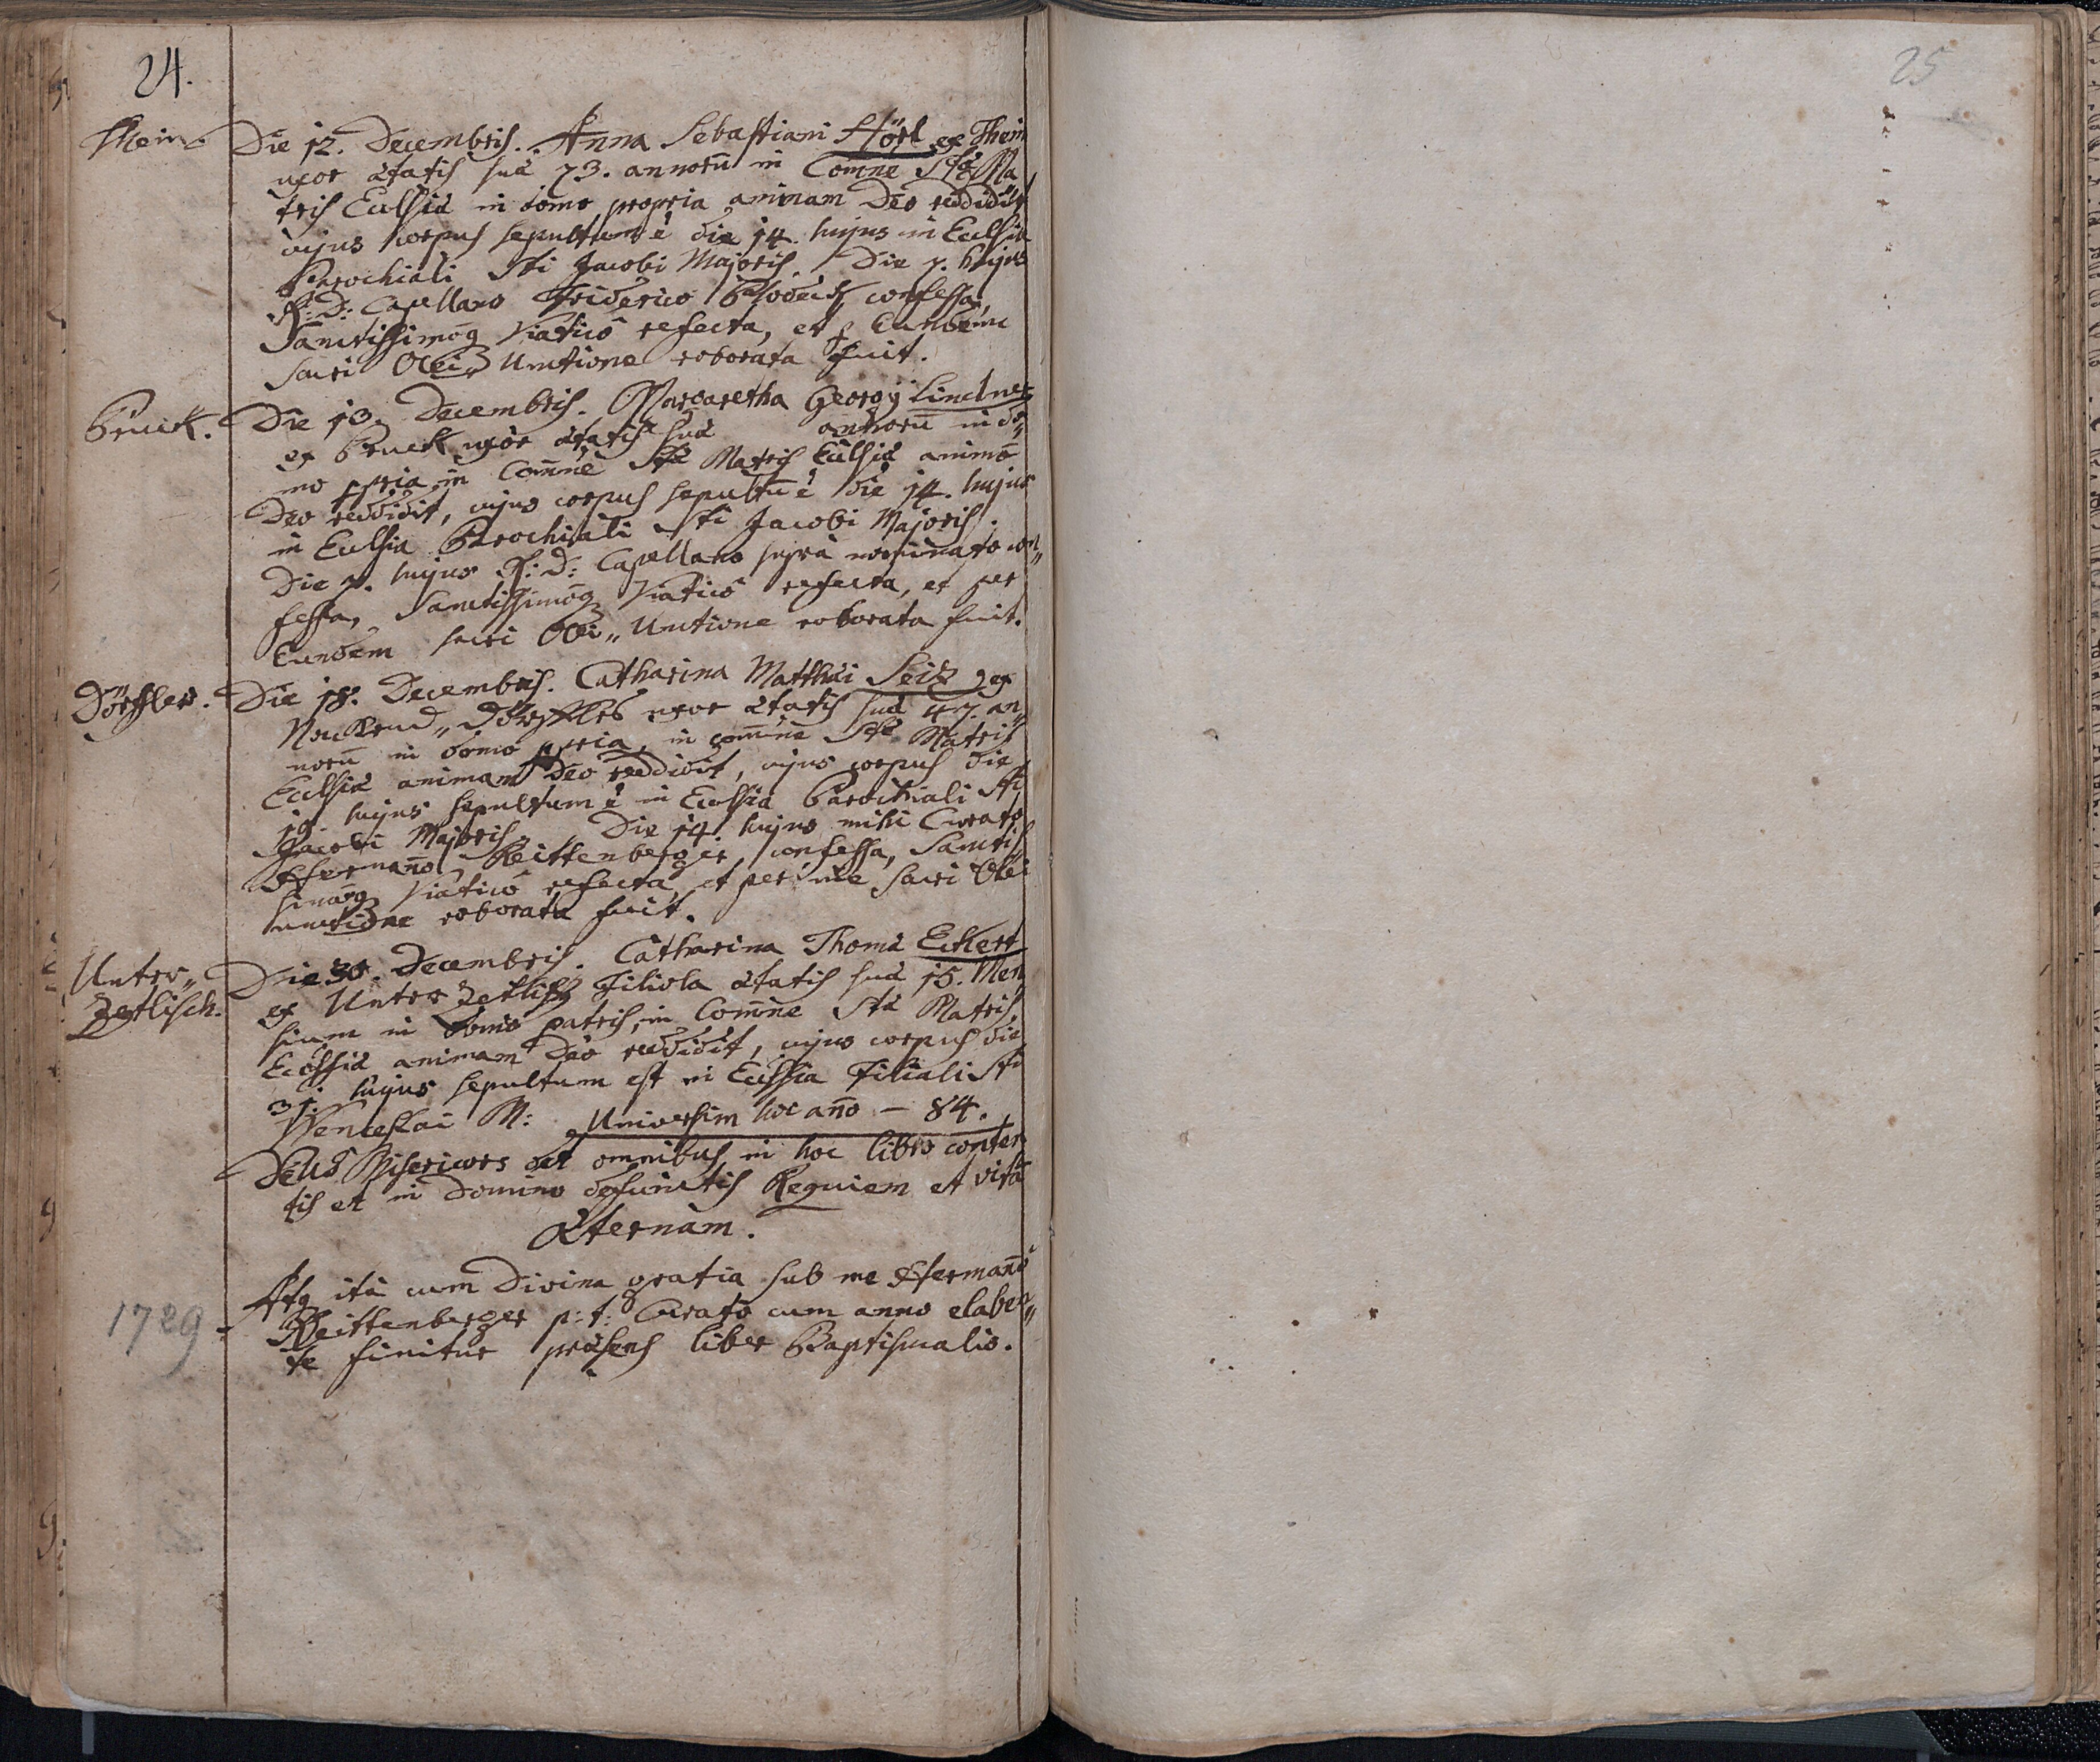 24.
25
Thein
Die 12. Decembris. Anna Sebastiani Hörl ex Thein
uxor ætatis suæ 73. annorū in Comñe Stæ Ma
tris Ecclsiæ in domo propria animam Deo reddidit
cujus corpus sepultum ē die 14. hujus in Ecclsia
Parochiali Sti Jacobi Majoris. Die 7. hujus
R: D: Capellano Friderico confessa,
Sanctissimoq Viatico refecta, et p Eundem
sacri Olei„ Unctione roborata fuit.
Pruck.
Die 13. Decembris. Margaretha Georgÿ Lindner
ex Pruck uxor ætatis suæ annorū in do„
mo ppria in Comñe Stæ Matris Ecclsiæ animā
Deo reddidit, cujus corpus sepultū ē die 14. hujus
in Ecclsia Parochiali Sti Jacobi Majoris.
Die 7. hujus R: D: Capellano supra nominato con„
fessa, Sanctissimoq Viatico refecta, et per
Eundem sacri Olei„ Unctione roborata fuit.
Dörffles.
Die 18. Decembris. Catharina Matthæi Seitz ex
Dörffles uxor ætatis suæ 47. an„
norū in domo ppria, in comñe Stæ Matris
Ecclsiæ animam Deo reddidit, cujus corpus die
19. hujus sepultum ē in Ecclsia Parochiali Sti
Jacobi Majoris. Die 14. hujus mihi Curato
Hermaño Reittenberger confessa, Sanctis„
simoq Viatico refecta et per me sacri Olei
unctione roborata fuit.
Unter„
Zetlisch.
Die 30. Decembris. Catharina Thomæ Eckert
ex Unter Zetlisch Filiola ætatis suæ 15. Men
sium in domo patris, in Comñe Stæ Matris
Ecclsiæ animam Deo reddidit, cujus corpus die
31. hujus sepultum est in Ecclsia Filiali Sti
Wenceslai M: Universim hoc año – 84.
Deus Misericors det omnibus in hoc libro conten
tis et in Domino defunctis Requiem et vitā
Æternam.
Atq ita cum Divina gratia sub me Hermaño
Reittenberger p: t: Curato cum anno elaben„
te finitur præsens liber Baptismalis.
1729